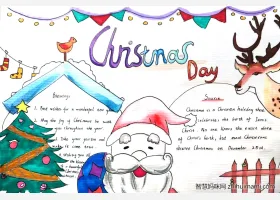 Christmas
Day
Blessings
1. Best wishes for a wonderful new year
2. May the joy of Christmas be with
you throughout the year
3. Take your
Source
Christmas is a Christian holiday that
celebrates the birth of Jesus
Christ. No one knows the exact date
of Christ's birth, but most Christians
observe Christmas on December 25.
智慧妈咪网 zhihuimami.com